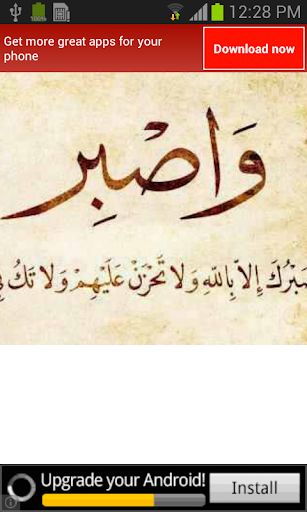 12:28 PM
Get more great apps for your
phone
Download now
وَاصْبِر
صَبْرُكَ إِلاَّ بِاللّهِ وَلاَ تَحْزَنْ عَلَيْهِمْ وَلاَ تَكُ فِي
Upgrade your Android!
Install